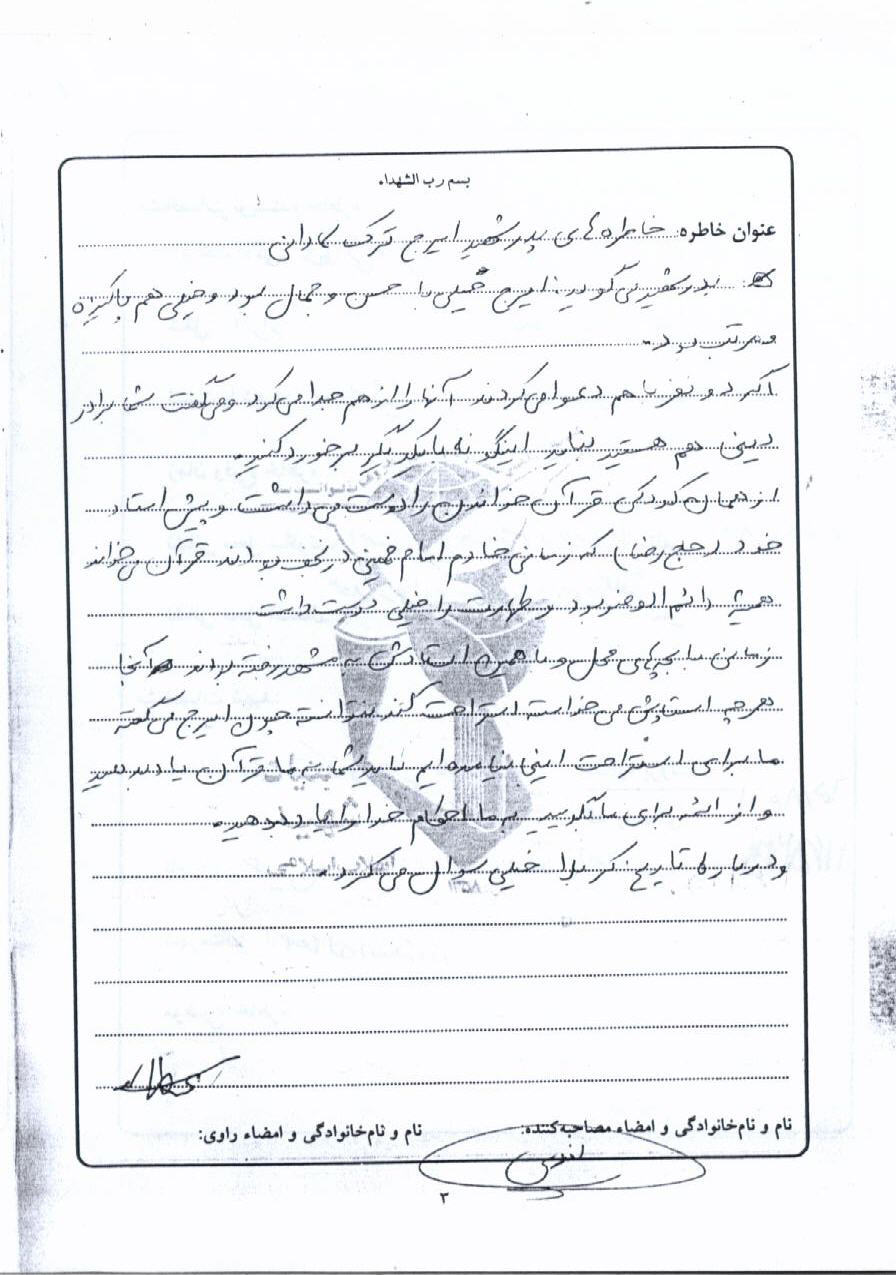 بسم رب الشهداء
عنوان خاطره: خاطره های پدر شهید ایرج ترک
پدر شهید می گوید: ایرج خیلی با حسن و جمال بود و خیلی هم پاکیزه
و مرتب بود.
اگر دو نفر با هم دعوا می کردند آنها را از هم جدا می کرد و می گفت شما برادر
دینی هم هستید نباید اینگونه با یکدیگر برخورد کنید.
از همان کودکی قرآن خواندن را دوست می داشت و پیش استاد
خود (حاج رضا) که زمانی خادم امام خمینی در نجف بودند قرآن می خواند
همیشه دائم الوضو بود و طهارت را خیلی دوست داشت
زمانی با بچه های محل و با همین استادش به مشهد رفته بودند آنجا
هر چه استادش می خواسته استراحت کند نتوانسته چون ایرج می گفته
ما برای استراحت اینجا نیامده ایم باید شما به ما قرآن یاد بدهید
و از ائمه برای ما بگویید به ما احکام خدا را یاد بدهید.
و درباره تاریخ کربلا خیلی سوال می کرد.
نام و نام خانوادگی و امضاء مصاحبه کننده: نام و نام خانوادگی و امضاء راوی:
۳